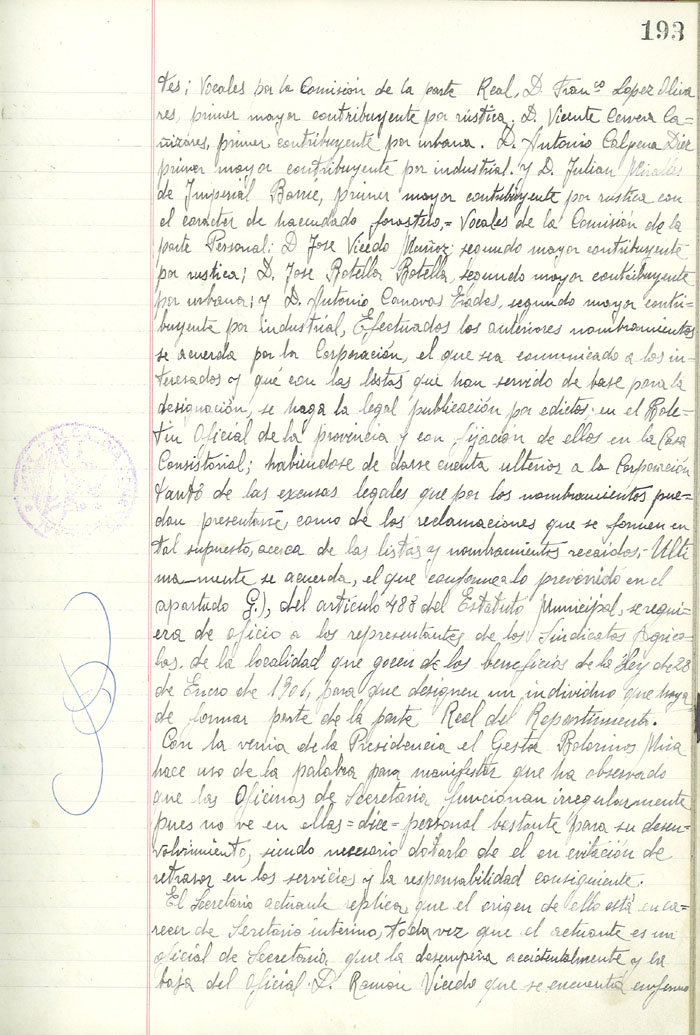 193
tes; Vocales por la Comisión de la parte Real, D. Franco Lopez Oliva
res, primer mayor contribuyente por rústica; D. Vicente Cervera Ca-
ñizares, primer contribuyente por urbana. D. Antonio Calpena Diez
primer mayor contribuyente por industrial. y D. Julian Miralles
de Imperial Barrié, primer mayor contribuyente por rústica con
el carácter de hacendado forastero,= Vocales de la Comisión de la
parte Personal: D Jose Vicedo Muñoz; segundo mayor contribuyente
por rustica; D. Jose Botella Botella, segundo mayor contribuyente
por urbana; y D. Antonio Canovas Erades, segundo mayor contri-
buyente por industrial, Efectuados los anteriores nombramientos
se acuerda por la Corporación, el que sea comunicado a los in-
teresados y qué con las listas que han servido de base para la
designación, se haga la legal publicación por edictos; en el Bole-
tin Oficial de la provincia y con fijación de ellos en la Casa
Consistorial; habiendose de darse cuenta ulterior a la Corporación
tanto de las excusas legales que por los nombramientos pue-
dan presentarse, como de las reclamaciones que se formen en
tal supuesto, acerca de las listas y nombramientos recaidos;- Ulti
ma-mente se acuerda, el que conforme a lo prevenido en el
apartado G.), del artículo 483 del Estatuto Municipal, se requi-
era de oficio a los representantes de los Sindicatos Agrico-
las, de la localidad que gocen de los beneficios de la Ley de 28
de Enero de 1906, para que designen un individuo que haya
de formar parte de la parte Real del Repartimento.
Con la venia de la Presidencia el Gestor Bolorinos Mira
hace uso de la palabra para manifestar que ha observado
que las Oficinas de Secretaria funcionan irregularmente
pues no ve en ellas=dice=personal bastante para su desen-
volvimiento, siendo necesario dotarlo de el en evitación de
retrasos en los servicios y la responsabilidad consiguiente.
El Secretario actuante replica, que el origen de ello está en ca-
recer de Secretario interino, toda vez que el actuante es un
oficial de Secretaria, que la desempeña accidentalmente y la
baja del oficial D. Ramón Vicedo que se encuentra enfermo